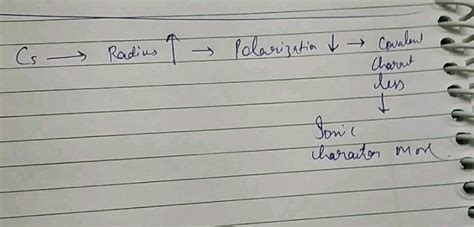 Cs → Radius ↑ → Polarization ↓ → Covalent
Charact
less
↓
Ionic
character more